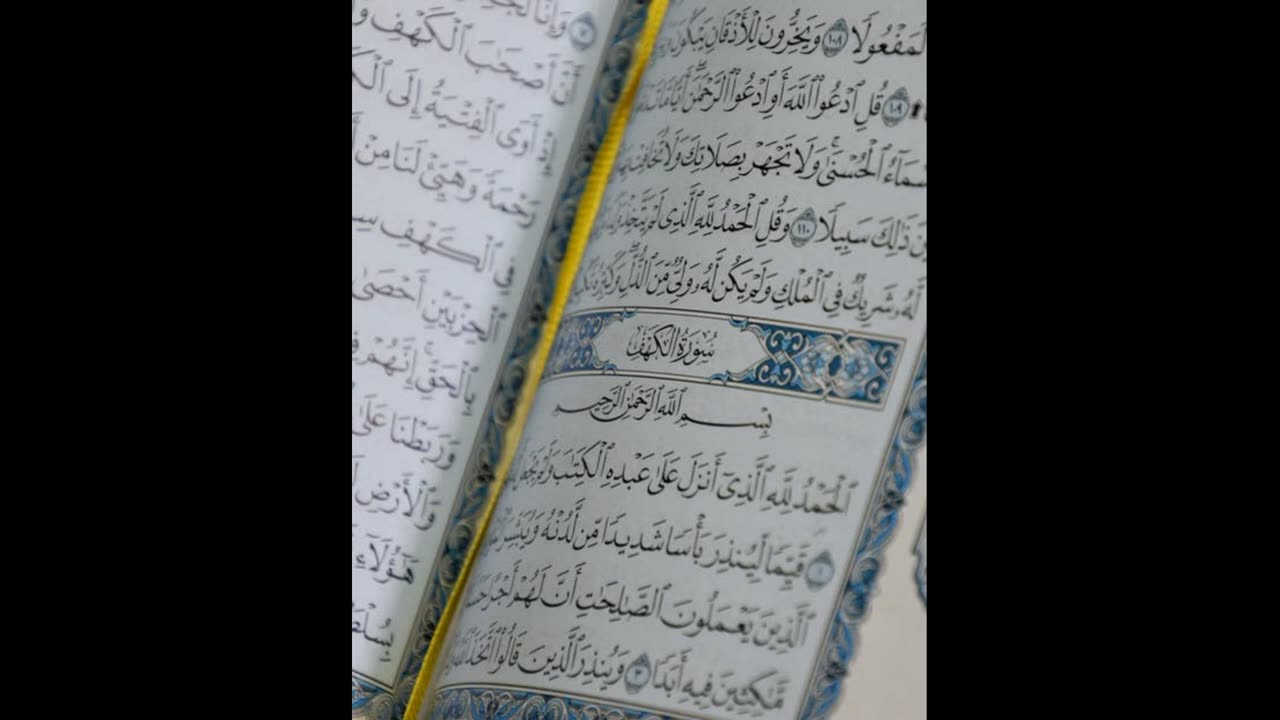 لَمَفْعُولًا ١٠٨ وَيَخِرُّونَ لِلْأَذْقَانِ يَبْكُونَ
١٠٩ قُلِ ٱدْعُوا۟ ٱللَّهَ أَوِ ٱدْعُوا۟ ٱلرَّحْمَٰنَ ۖ أَيًّا مَّا
ٱلْحُسْنَىٰ ۚ وَلَا تَجْهَرْ بِصَلَاتِكَ وَلَا تُخَافِتْ
ذَٰلِكَ سَبِيلًا ١١٠ وَقُلِ ٱلْحَمْدُ لِلَّهِ ٱلَّذِى لَمْ يَتَّخِذْ
لَّهُۥ شَرِيكٌ فِى ٱلْمُلْكِ وَلَمْ يَكُن لَّهُۥ وَلِىٌّ مِّنَ ٱلذُّلِّ ۖ وَكَبِّرْهُ
سُورَةُ الكَهْفِ
بِسْمِ ٱللَّهِ ٱلرَّحْمَٰنِ ٱلرَّحِيمِ
ٱلْحَمْدُ لِلَّهِ ٱلَّذِىٓ أَنزَلَ عَلَىٰ عَبْدِهِ ٱلْكِتَٰبَ وَلَمْ يَجْعَل
١ قَيِّمًا لِّيُنذِرَ بَأْسًا شَدِيدًا مِّن لَّدُنْهُ وَيُبَشِّرَ
ٱلَّذِينَ يَعْمَلُونَ ٱلصَّٰلِحَٰتِ أَنَّ لَهُمْ أَجْرًا
مَّٰكِثِينَ فِيهِ أَبَدًا ٣ وَيُنذِرَ ٱلَّذِينَ قَالُوا۟ ٱتَّخَذَ
أَنَّ أَصْحَٰبَ ٱلْكَهْفِ
أَوَى ٱلْفِتْيَةُ إِلَى
رَحْمَةً وَهَيِّئْ لَنَا مِنْ
ٱلْكَهْفِ
ٱلْحِزْبَيْنِ أَحْصَىٰ
بِٱلْحَقِّ ۚ إِنَّهُمْ
وَرَبَطْنَا عَلَىٰ
وَٱلْأَرْضِ
هَٰٓؤُلَآءِ